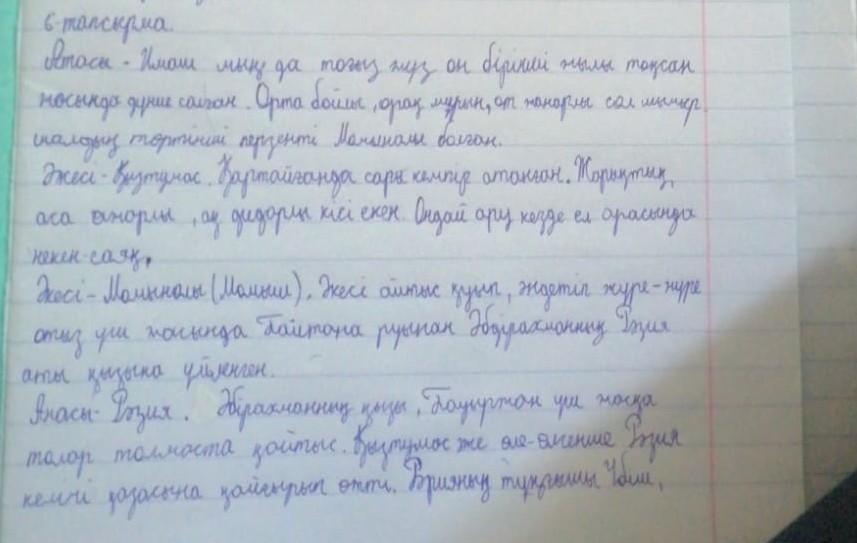 6-тапсырма.
Атасы - Имаш мың да тоғыз жүз он бірінші жылы тоқсан
жасында дүние салған. Орта бойлы, орақ мұрын, от жанарлы сол шымыр
шалдың төртінші перзенті Момынәлі болған.
Әжесі - Қызтумас. Қартайғанда сары кемпір атанған. Жарықтық,
аса ажарлы, ақ дидарлы кісі екен. Ондай ару кезде ел арасында
некен-саяқ.
Әкесі - Момынәлі (Момыш). Әкесі айтыс қуып, әндетіп жүре-жүре
отыз үш жасында Байтана руынан Әбдірахманның Рәзия
аты қызына үйленген.
Анасы - Рәзия. Әбірахманның қызы, Бауыржан үш жасқа
толар толмаста қайтыс. Қызтумас же өле-өлгенше Рәзия
келіні қазасына қайғырып өтті. Рзияның тұңғышы Үбіш,